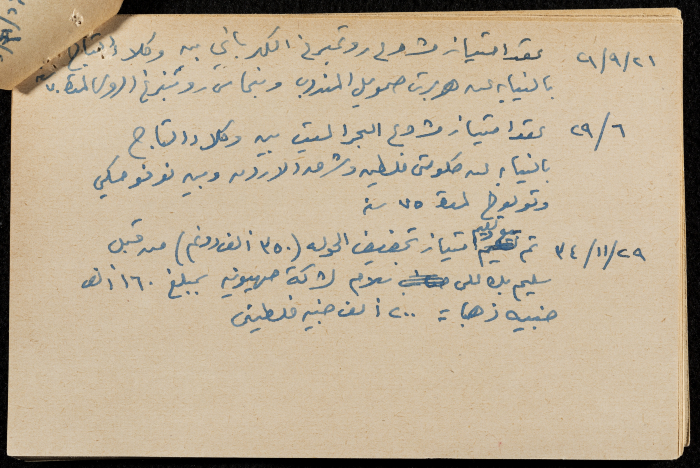 ٢١/٩/٢١ عقد امتياز مشروع روتمبرغ الكهربائي بين وكلاء التاج
بالنيابة عن هربرت صموئيل المندوب وبنحاس روتنبرغ الروسي لمدة ٧٠
٢٩/٦ عقد امتياز مشروع البحر الميت بين وكلاء التاج
بالنيابة عن حكومتي فلسطين وشرق الاردن وبين نوفومسكي
وتولوخ لمدة ٧٥ سنة
٣٤/١١/٢٩ تم بيع وتسليم امتياز تجفيف الحولة (٣٥٠ الف دونم) من قبل
سليم بك علي سلام لشركة صهيونية بمبلغ ١٦٠ الف
جنيه ذهبا = ٢٠٠ الف جنيه فلسطيني